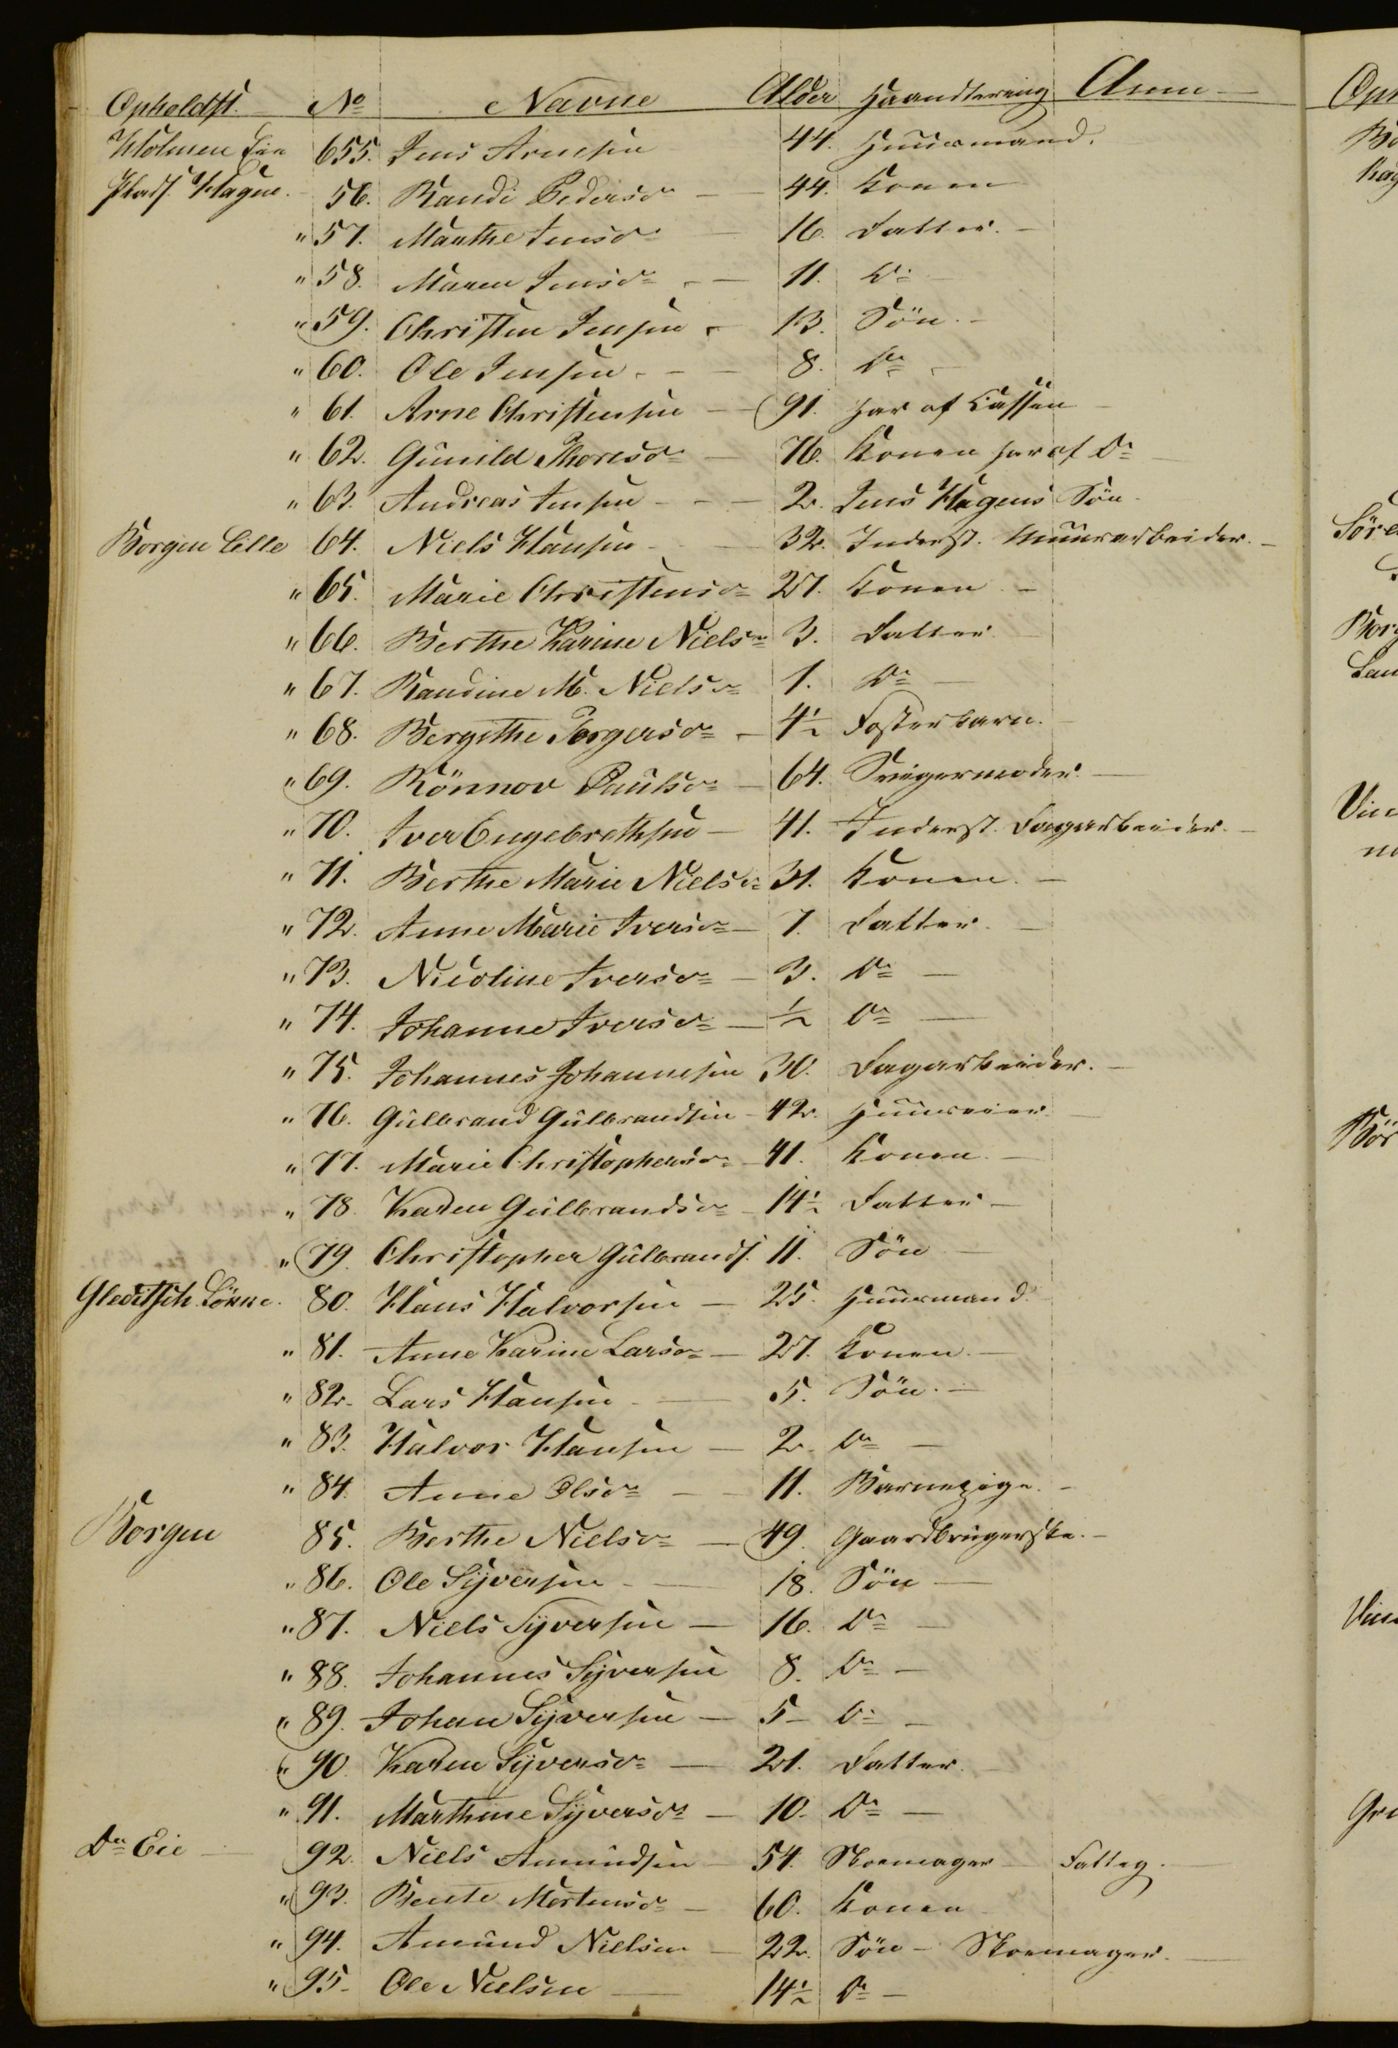 Opholdsst. No Navne Alder Haandtering Anm
Holmen Eie 655. Jens Arnesen 44. Huusmand.
Plads Hagen. 56. Randi Pedersdr 44. Konen
" 57. Marthe Jensdr 16. Datter.
" 58. Maren Jensdr 11. Do
" 59. Christen Jensen 13. Søn.
" 60. Ole Jensen 8. Do
" 61. Arne Christensen 91. har af Cassen
" 62. Gunild Thoresdr 76. Konen har af Do
" 63. Andreas Jensen 2. Jens Hagens Søn.
Borgen Lille 64. Niels Hansen 32. Inderst. Muurarbeider.
" 65. Marie Christensdr 27. Konen
" 66. Berthe Karine Nielsdr 3. Datter.
" 67. Randine M. Nielsdr 1. Do
" 68. Bergithe Torgersdr 4½ Fosterbarn.
" 69. Rönnov Paulsdr 64. Svigermoder.
" 70. Iver Engebrethsen 41. Inderst. Dagarbeider.
" 71. Berthe Marie Nielsdr 31. Konen.
" 72. Anne Marie Iversdr 7. Datter.
" 73. Nicoline Iversdr 3. Do
" 74. Johanne Iversdr ½ Do
" 75. Johannes Johannesen 30. Dagarbeider.
" 76. Gulbrand Gulbrandsen 42. Huuseier
" 77. Marie Christophersdr 41. Konen.
" 78. Karen Gulbrandsdr 14½ Datter
" 79. Christopher Gulbrands. 11. Søn
Gleditsch Lökke. 80. Hans Halvorsen 25. Huusmand.
" 81. Anne Karine Larsdr 27. Konen.
" 82. Lars Hansen 5. Søn.
" 83. Halvor Hansen 2. Do
" 84. Anne Olsdr 11. Barnepige.
Borgen 85. Berthe Nielsdr 49. Gaardbrugerske.
" 86. Ole Syversen 18. Søn
" 87. Niels Syversen 16. Do
" 88. Johannes Syversen 8. Do
" 89. Johan Syversen 5 Do
" 90. Karen Syversdr 21. Datter.
" 91. Marthine Syversdr 10. Do
Do Eie 92. Niels Amundsen 54. Skomager Fattig.
" 93. Bente Mortensdr 60. Konen
" 94. Amund Nielsen 22. Søn - Skomager.
" 95 Ole Nielsen 14½ Do